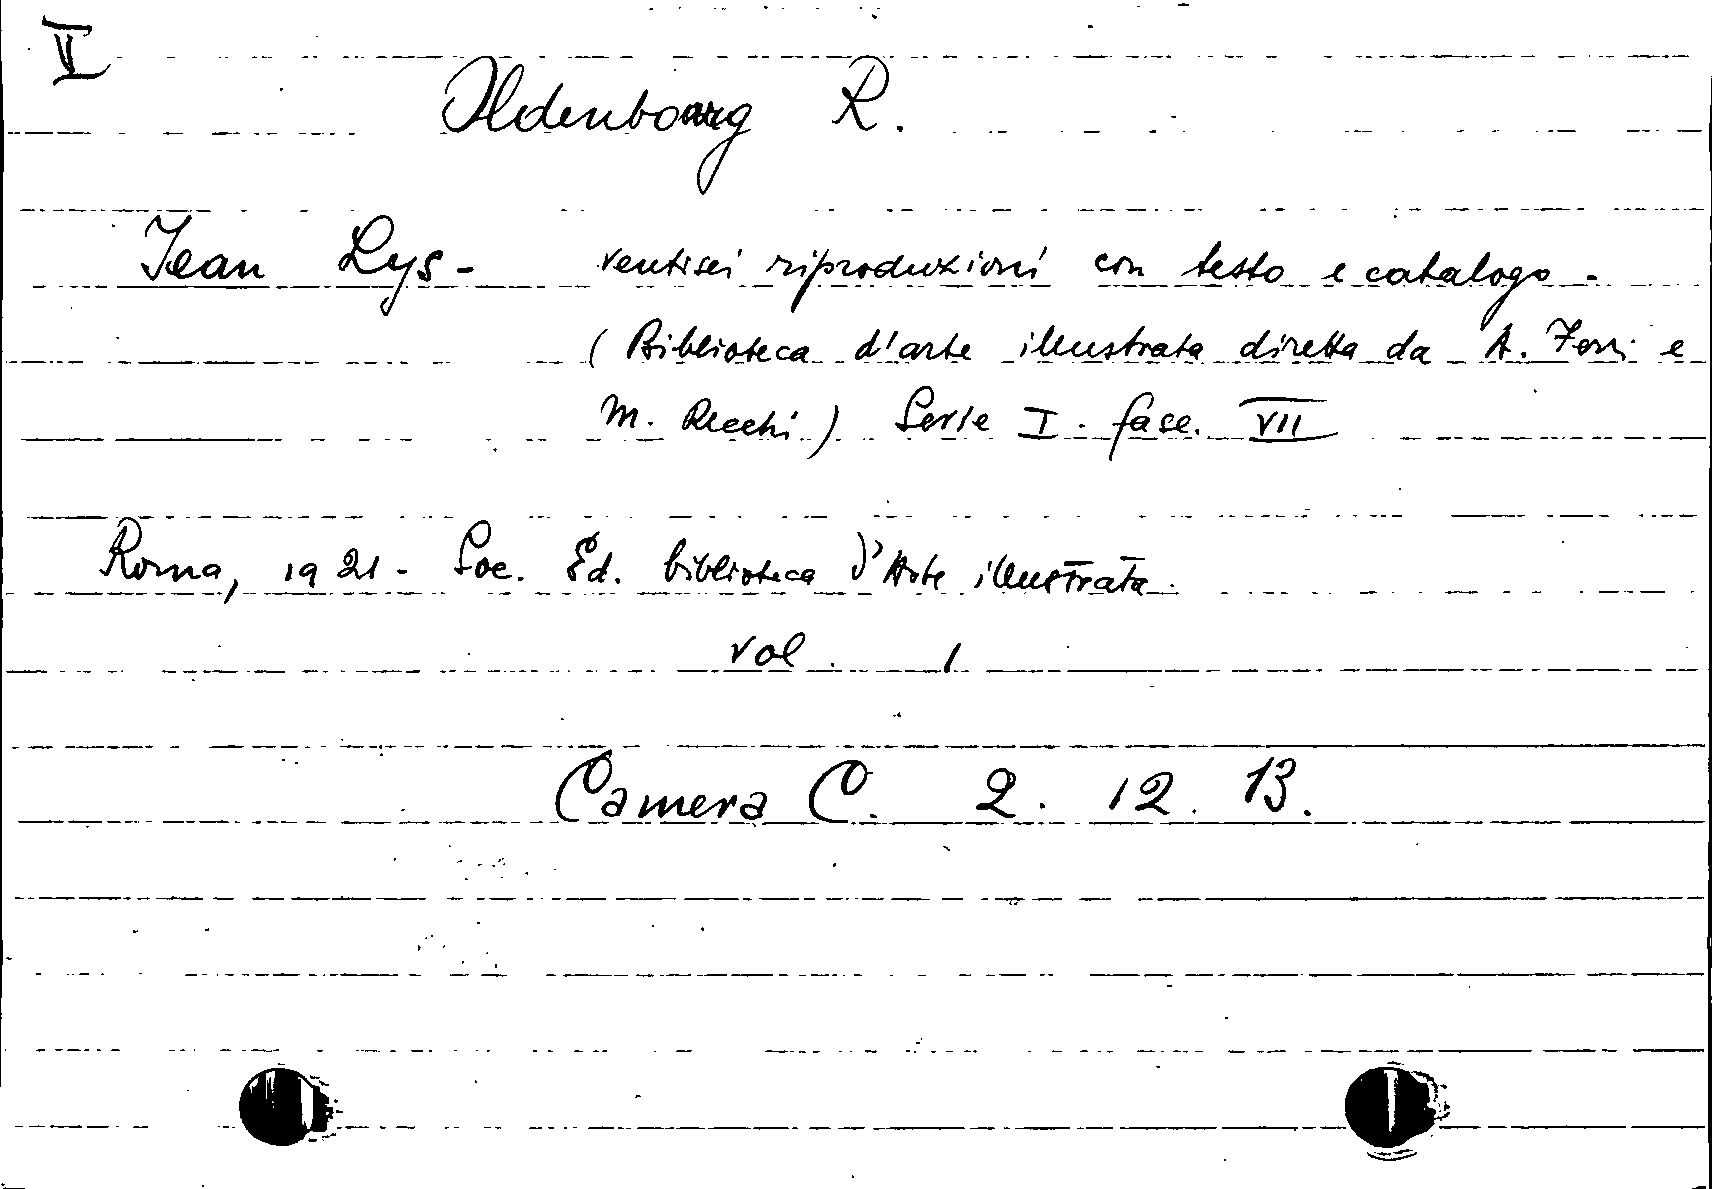 V
Oldenbourg R.
Jean Lys - ventisei riproduzioni con testo e catalogo -
( Biblioteca d'arte illustrata diretta da A. Ferri e
M. Recchi ) Serie I. fasc. VII
Roma, 1921 - Soc. Ed. biblioteca d'Arte illustrata.
vol. 1
Camera C. 2. 12. 13.